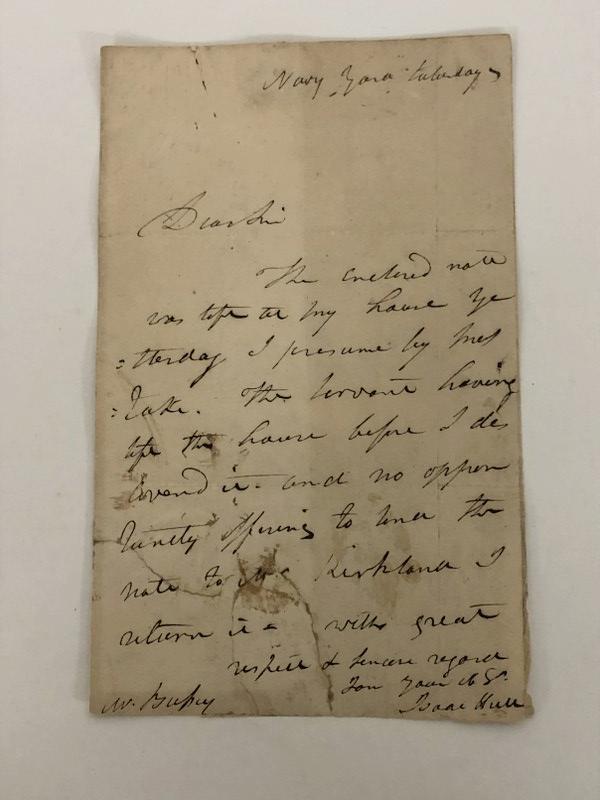 Navy Yard Saturday
Dear Sir
The enclosed note
was left at my house Ye
=sterday I presume by mis
=take. The servant having
left the house before I dis
covered it - and no oppor
tunity offering to send the
note to Mr Kirkland I
return it - with great
respect & sincere regard
I am Your Ob St
Mr. Bussey Isaac Hull